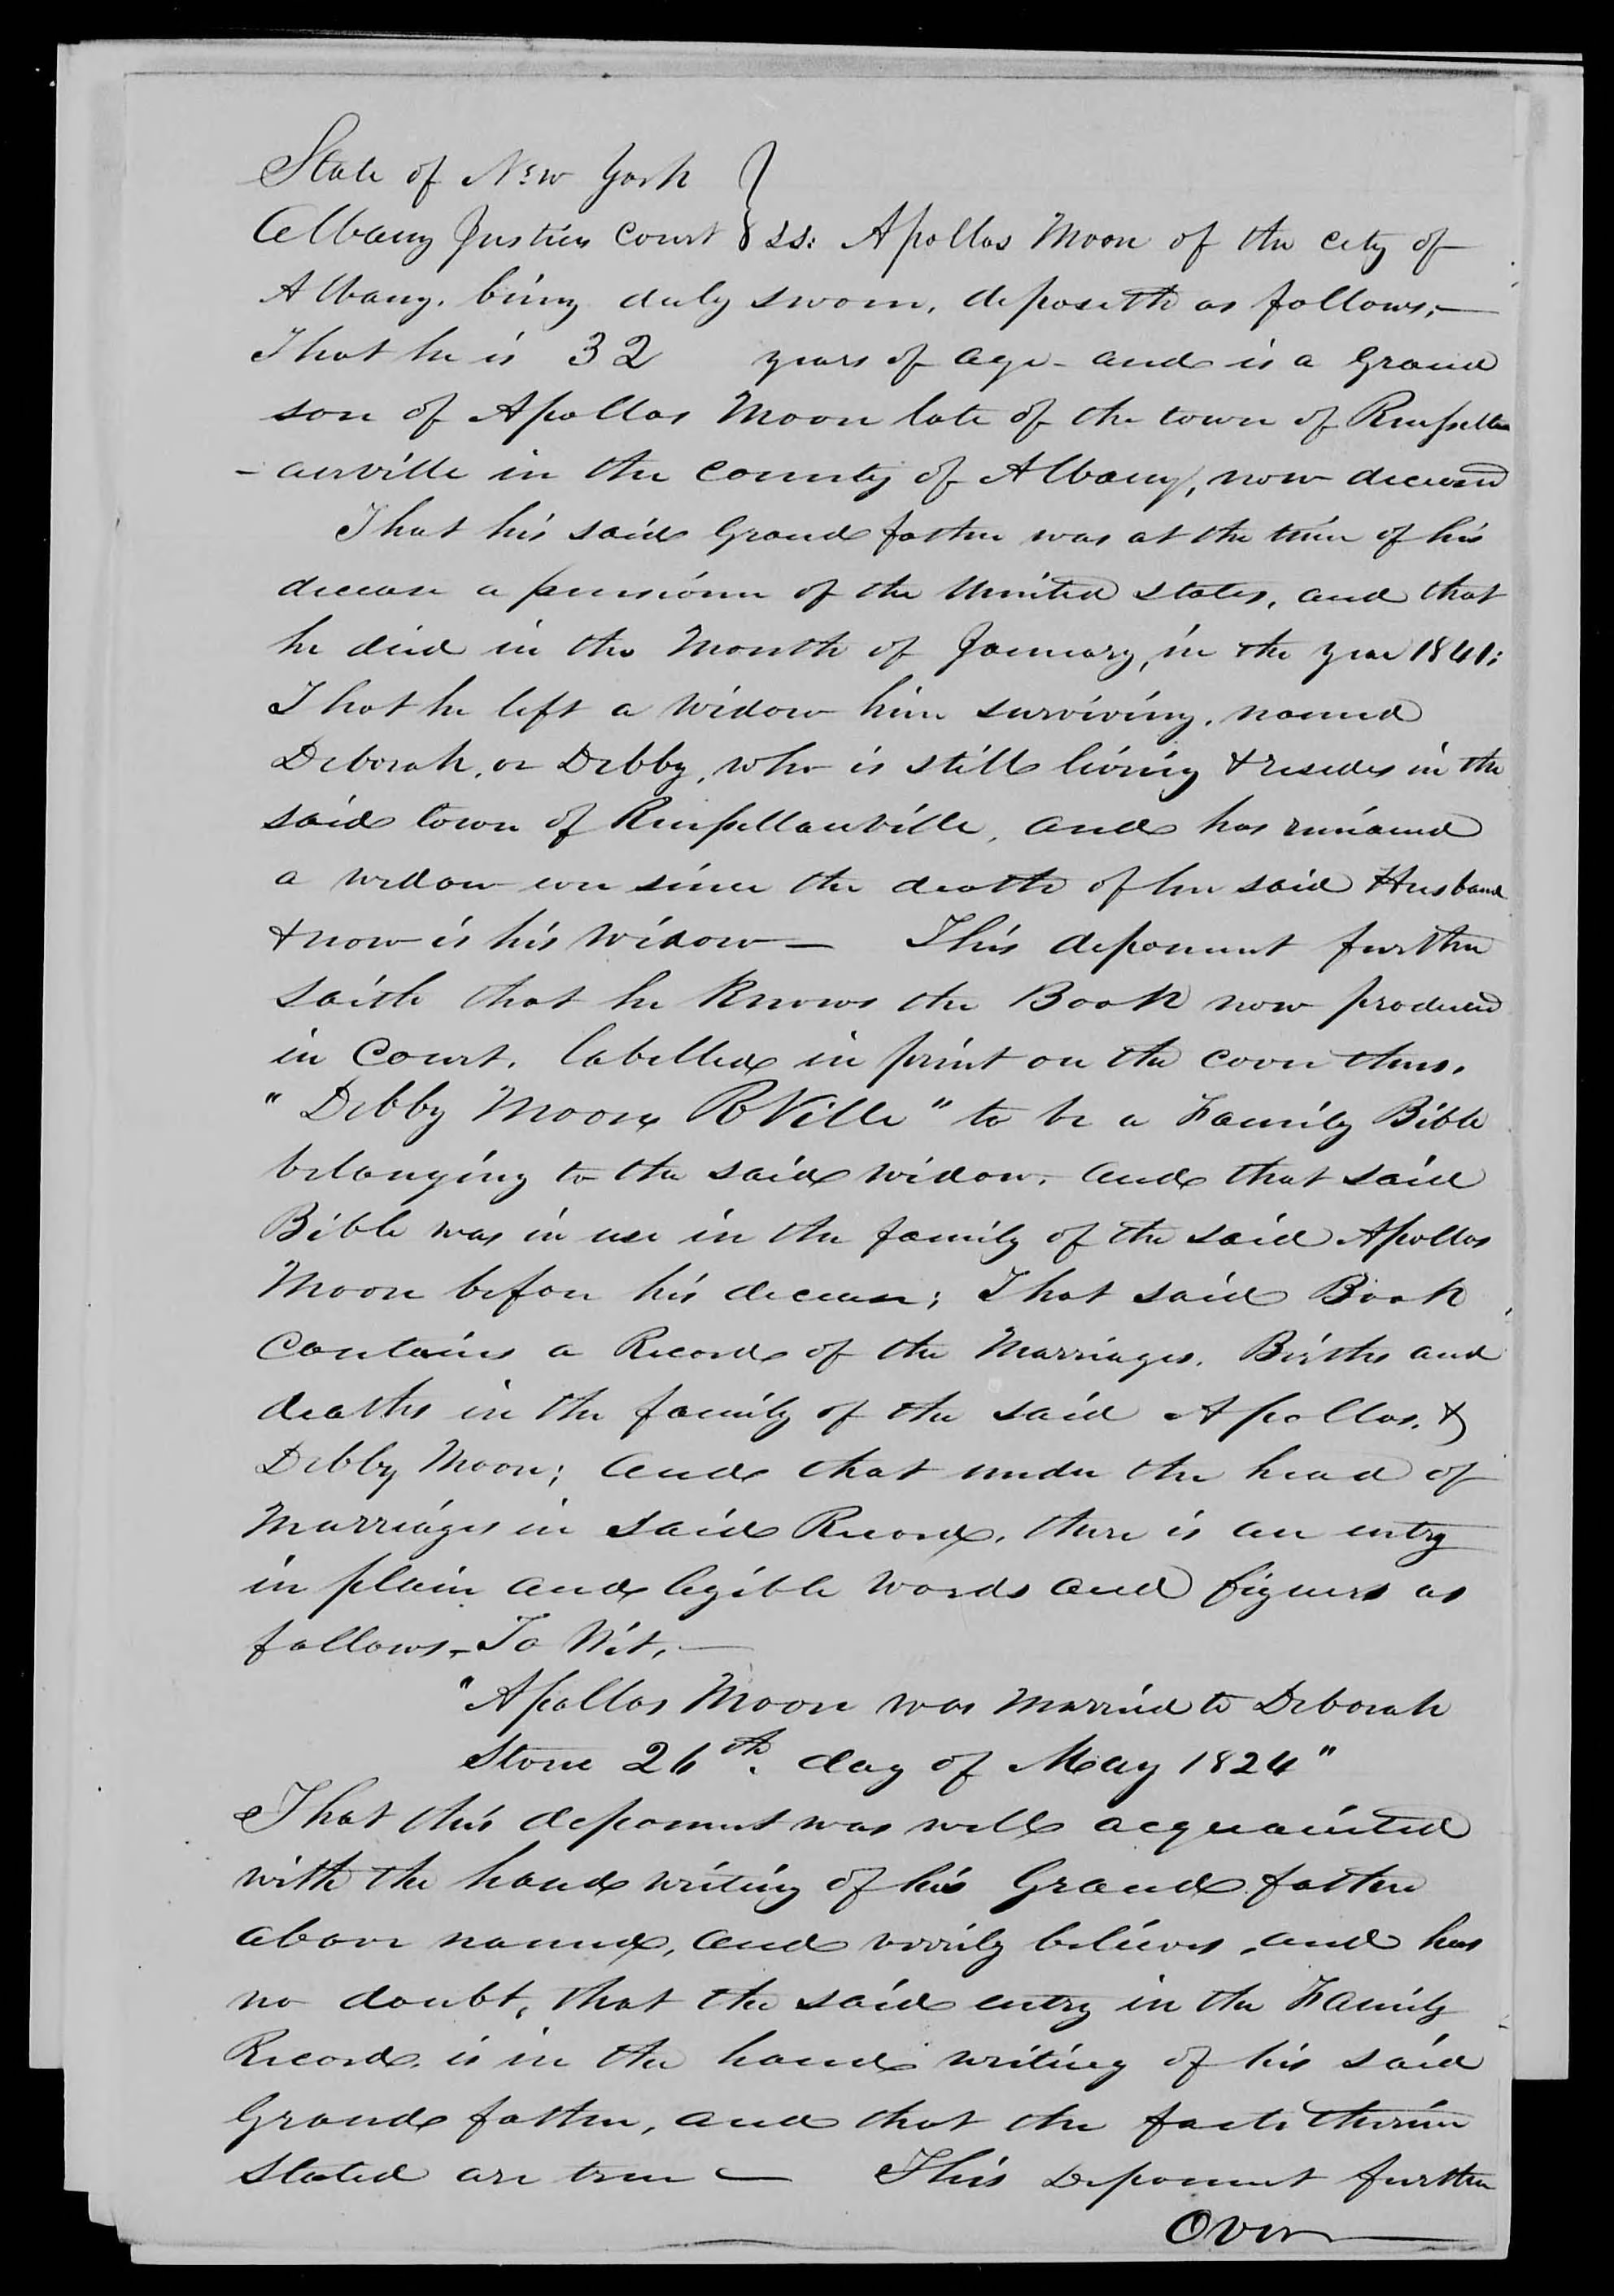 State of New York }
Albany Justices Court } ss: Apollos Moon of the city of
Albany, being duly sworn, deposeth as follows,—
That he is 32 years of age - and is a Grand
son of Apollos Moon late of the town of Rensselaer
-ville in the county of Albany, now deceased
That his said Grand father was at the time of his
decease a pensioner of the United States, and that
he died in the Month of January, in the year 1841;
That he left a widow him surviving, named
Deborah, or Debby, who is still living & resides in the
said town of Rensellaerville, and has remained
a widow ever since the death of her said Husband
& now is his widow — This deponent further
saith that he knows the Book now produced
in Court, labelled in print on the cover thus,
" Debby Moon, R Ville" to be a Family Bible
belonging to the said widow, and that said
Bible was in use in the family of the said Apollos
Moon before his decease; That said Book
Contains a Record of the Marriages, Births and
deaths in the family of the said Apollos, &
Debby Moon; and that under the head of
Marriages in said Record, there is an entry
in plain and legible words and figures as
follows - To Wit, —
"Apollos Moon was Married to Deborah
Stone 26th. day of May 1824"
That this deponent was well acquainted
with the hand writing of his Grand father
above named, and verily believes, and has
no doubt, that the said entry in the Family
Record, is in the hand writing of his said
Grand father, and that the facts therein
stated are true — This Deponent further
Over